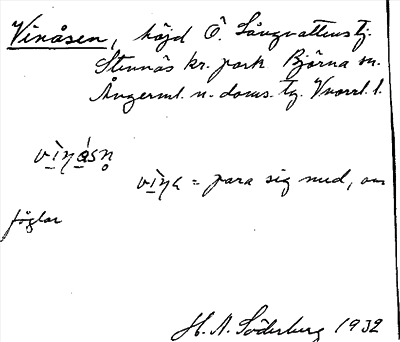 Vinåsen, höjd Ö. Långvattenstj.
Stennäs kr. park Björna sn.
Ångerml. n. doms. tg. Vnorrl. l.
vìŋåsn̥
vìŋa = para sig med, om
föglar
H. A. Söderberg 1932